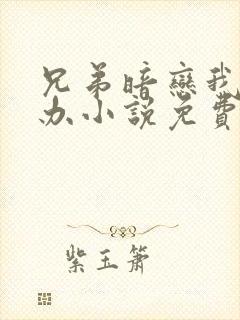 兄弟暗戀我
办小說免費
紫玉簫